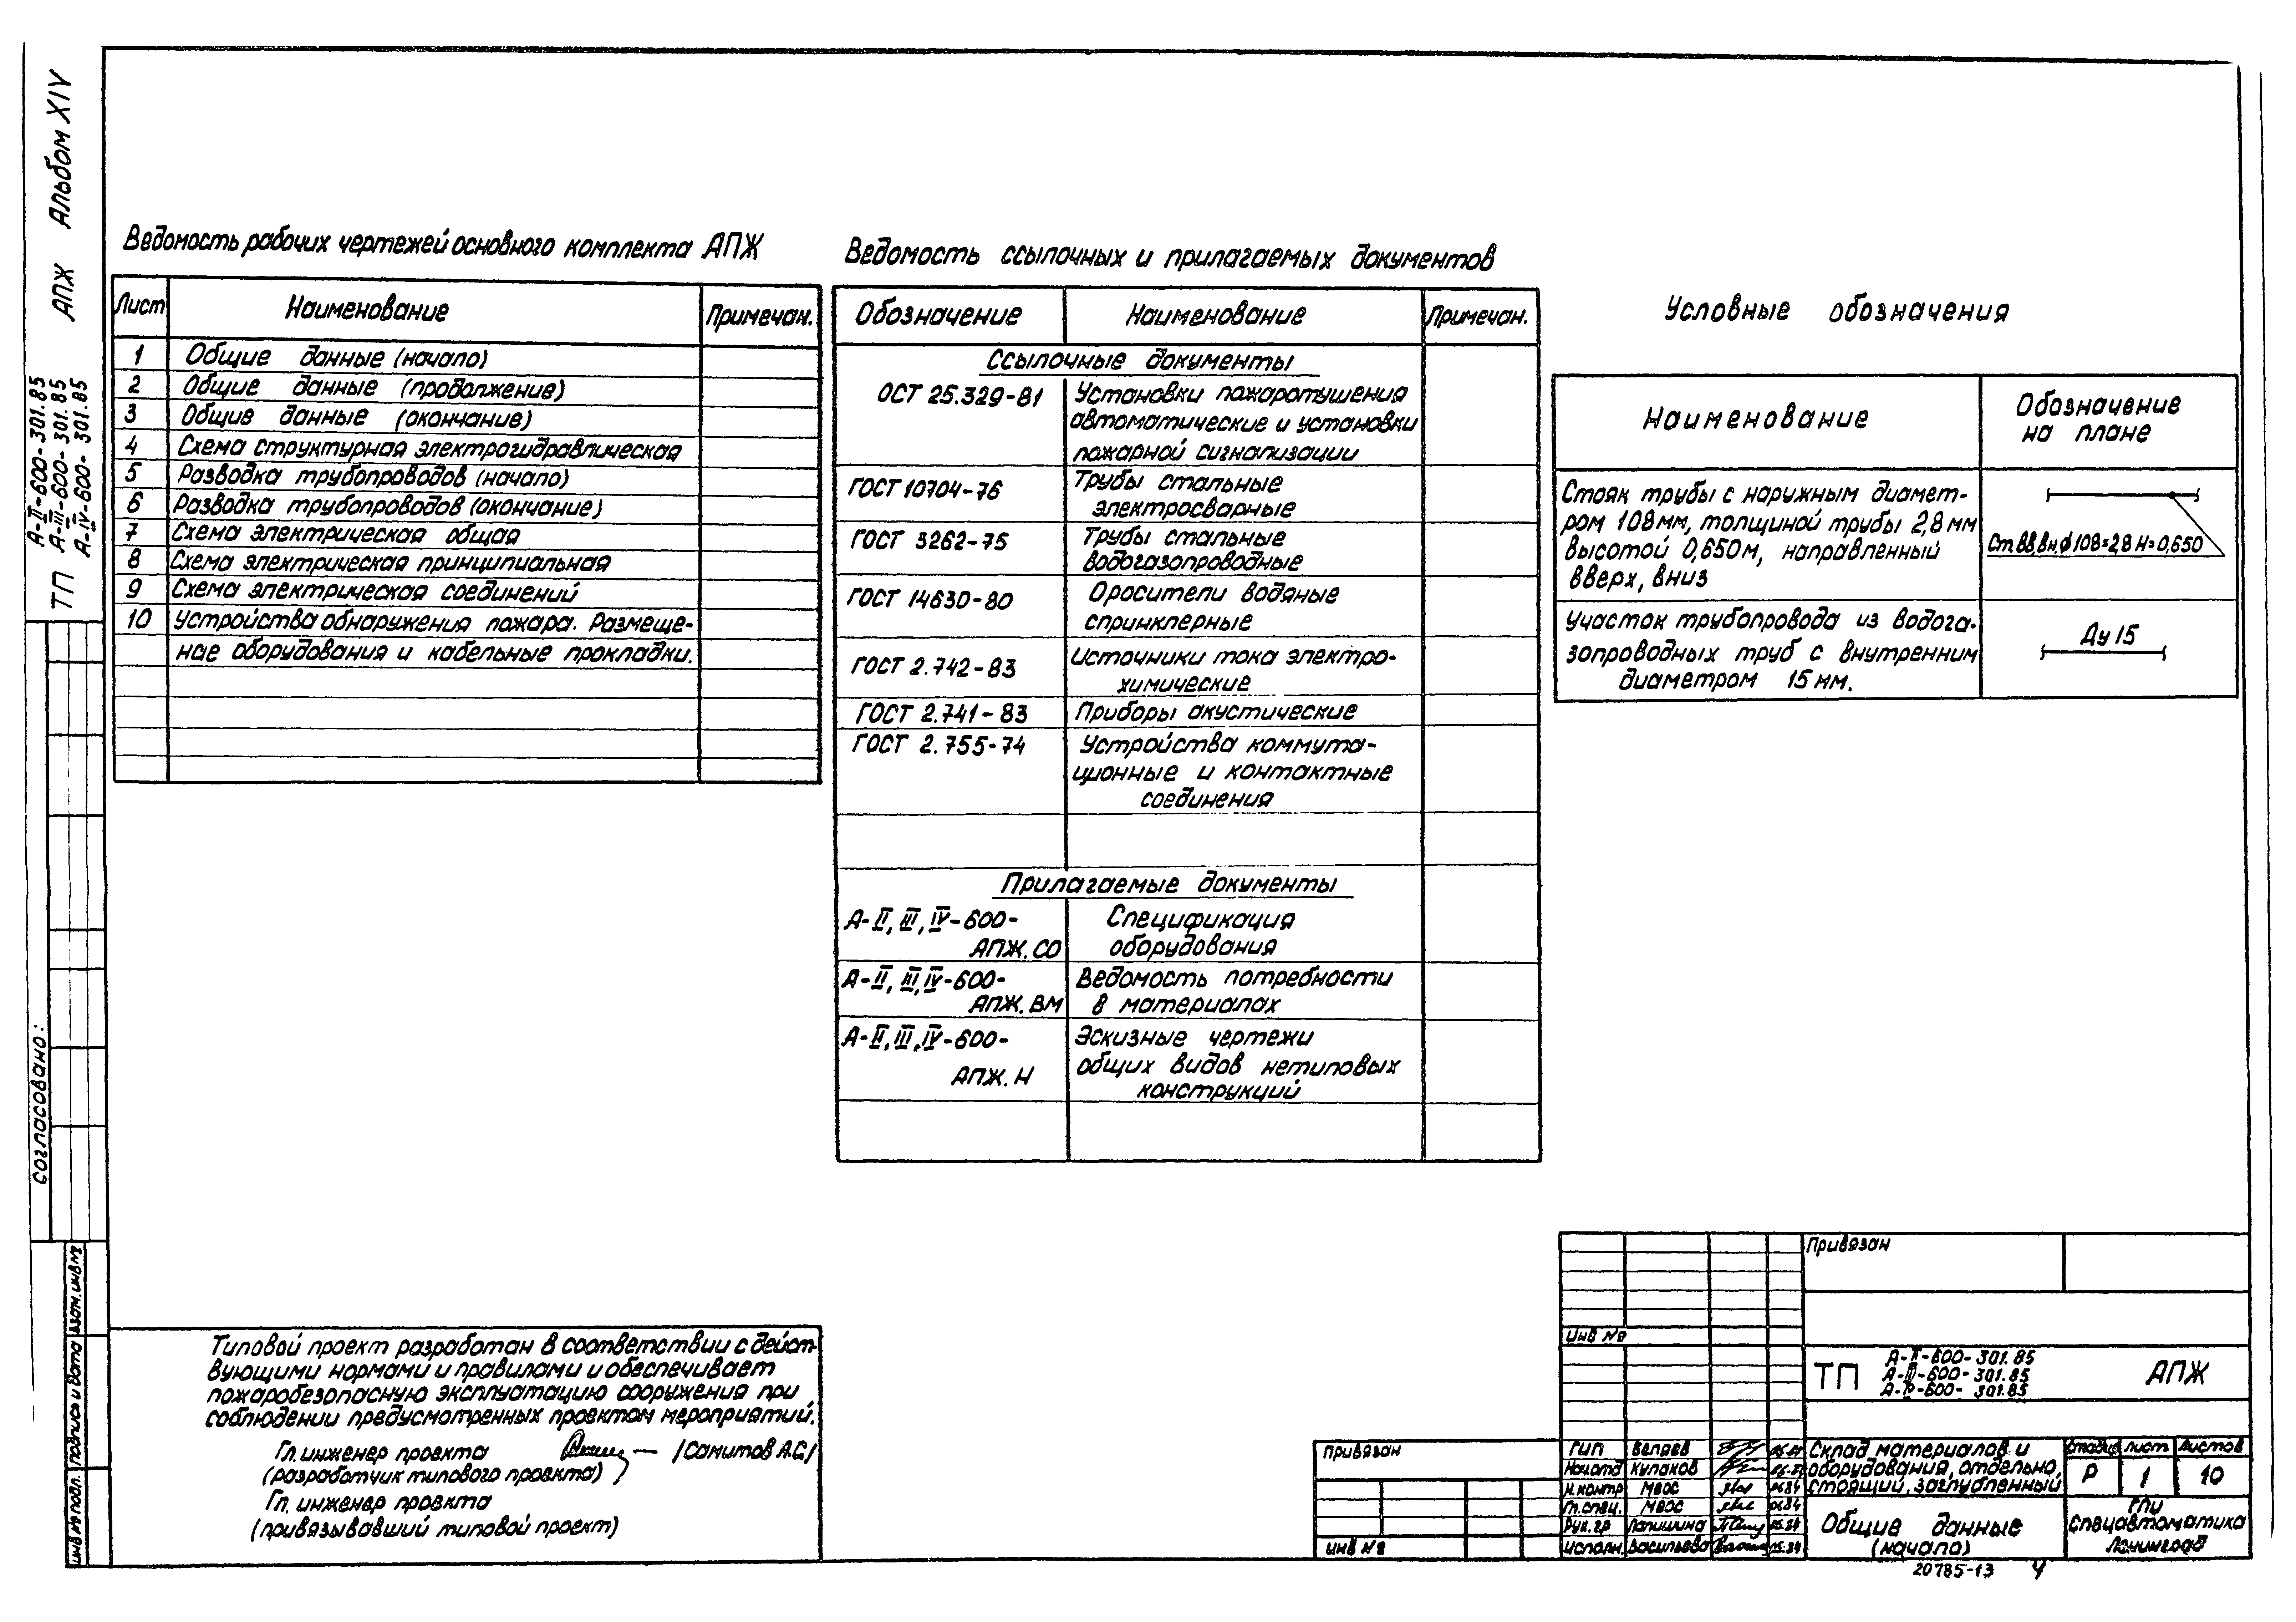 Альбом XIV
АПЖ
ТП А-II-600-301.85
А-III-600-301.85
А-IV-600-301.85
Согласовано:
Взам. инв. №
Подпись и дата
Инв. № подл.
Ведомость рабочих чертежей основного комплекта АПЖ
Лист Наименование Примечан.
1 Общие данные (начало)
2 Общие данные (продолжение)
3 Общие данные (окончание)
4 Схема структурная электрогидравлическая
5 Разводка трубопроводов (начало)
6 Разводка трубопроводов (окончание)
7 Схема электрическая общая
8 Схема электрическая принципиальная
9 Схема электрическая соединений
10 Устройства обнаружения пожара. Размеще-
ние оборудования и кабельные прокладки.
Ведомость ссылочных и прилагаемых документов
Обозначение Наименование Примечан.
Ссылочные документы
ОСТ 25.329-81 Установки пожаротушения
автоматические и установки
пожарной сигнализации
ГОСТ 10704-76 Трубы стальные
электросварные
ГОСТ 3262-75 Трубы стальные
водогазопроводные
ГОСТ 14630-80 Оросители водяные
спринклерные
ГОСТ 2.742-83 Источники тока электро-
химические
ГОСТ 2.741-83 Приборы акустические
ГОСТ 2.755-74 Устройства коммута-
ционные и контактные
соединения
Прилагаемые документы
А-II, III, IV-600- Спецификация
АПЖ.СО оборудования
А-II, III, IV-600- Ведомость потребности
АПЖ.ВМ в материалах
А-II, III, IV-600- Эскизные чертежи
общих видов нетиповых
АПЖ.Н конструкций
Условные обозначения
Наименование Обозначение
на плане
Стояк трубы с наружным диамет-
ром 108мм, толщиной трубы 2,8мм
высотой 0,650м, направленный
вверх, вниз
Ст.вв,вн.ф108×2,8 Н=0,650
Участок трубопровода из водога-
зопроводных труб с внутренним
диаметром 15мм.
Ду 15
Типовой проект разработан в соответствии с дейст-
вующими нормами и правилами и обеспечивает
пожаробезопасную эксплуатацию сооружения при
соблюдении предусмотренных проектом мероприятий.
Гл. инженер проекта /Самитов А.С./
(разработчик типового проекта)
Гл. инженер проекта
(привязывавший типовой проект)
Привязан
Инв №
Привязан
Инв №
ТП А-II-600-301.85
А-III-600-301.85
А-IV-600-301.85
АПЖ
ГИП Беляев
Нач.отд Кулаков
Н.контр Мвос 06.84
Гл.спец. Мвос 06.84
Рук.гр Лапишина 06.84
Исполн. Васильева 05.84
Склад материалов и
оборудования, отдельно
стоящий, заглубленный
Стадия Лист Листов
Р 1 10
Общие данные
(начало)
ГПИ
Спецавтоматика
Ленинград
20785-13 4